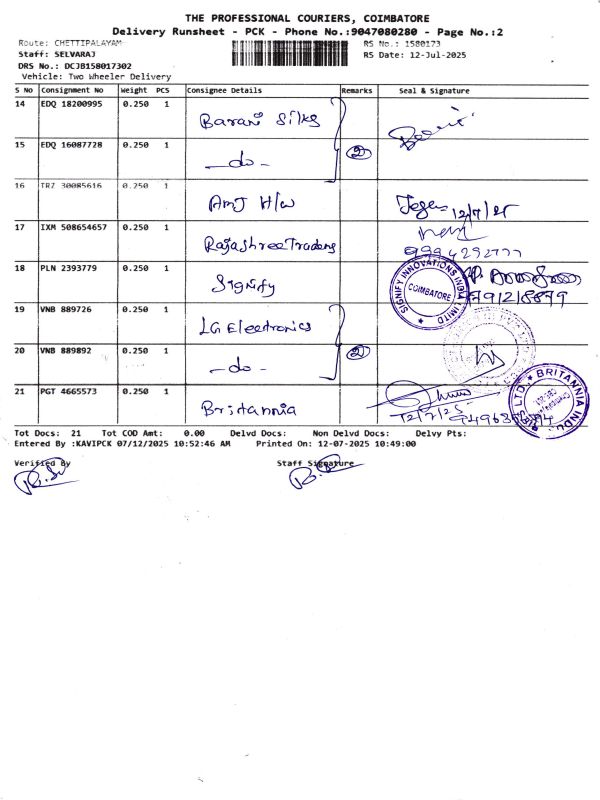 THE PROFESSIONAL COURIERS, COIMBATORE
Delivery Runsheet - PCK - Phone No.:9047080280 - Page No.:2
Route: CHETTIPALAYAM RS No.: 1580173
Staff: SELVARAJ RS Date: 12-Jul-2025
DRS No.: DCJB158017302
Vehicle: Two Wheeler Delivery
S No Consignment No Weight PCS Consignee Details Remarks Seal & Signature
14 EDQ 18200995 0.250 1 Barani Silks
15 EDQ 16087728 0.250 1 -do- 2
16 TRZ 30085616 0.250 1 AMJ H/W 12/7/25
17 IXM 508654657 0.250 1 Rajashree Traders
18 PLN 2393779 0.250 1 Signify SIGNIFY INNOVATIONS INDIA LIMITED COIMBATORE 9791218879
19 VNB 889726 0.250 1 LG Electronics
20 VNB 889892 0.250 1 -do- 2
21 PGT 4665573 0.250 1 Britannia 12/7/25 BRITANNIA
Tot Docs: 21 Tot COD Amt: 0.00 Delvd Docs: Non Delvd Docs: Delvy Pts:
Entered By :KAVIPCK 07/12/2025 10:52:46 AM Printed On: 12-07-2025 10:49:00
Verified By Staff Signature